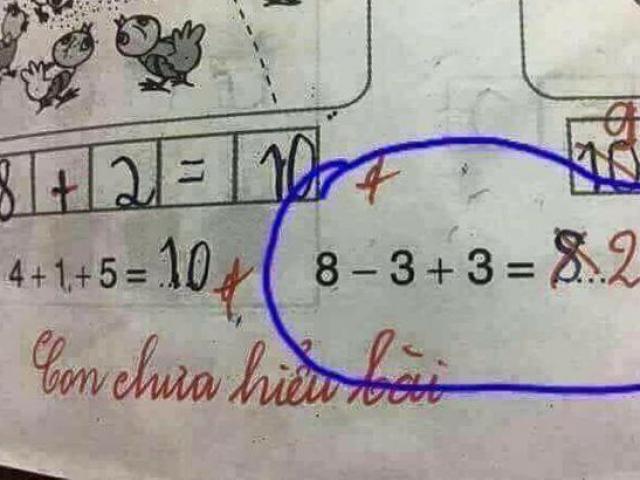 9
8 + 2 = 10 10
4 + 1 + 5 = 10 8 - 3 + 3 = 8 2
Con chưa hiểu bài